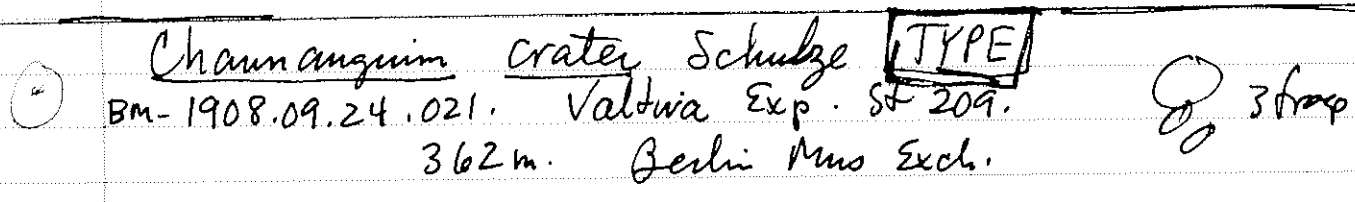 Chaunanguim crater Schulze TYPE
BM-1908.09.24.021. Valdivia Exp. St 209. 3 frag
362 m. Berlin Mus Exch.